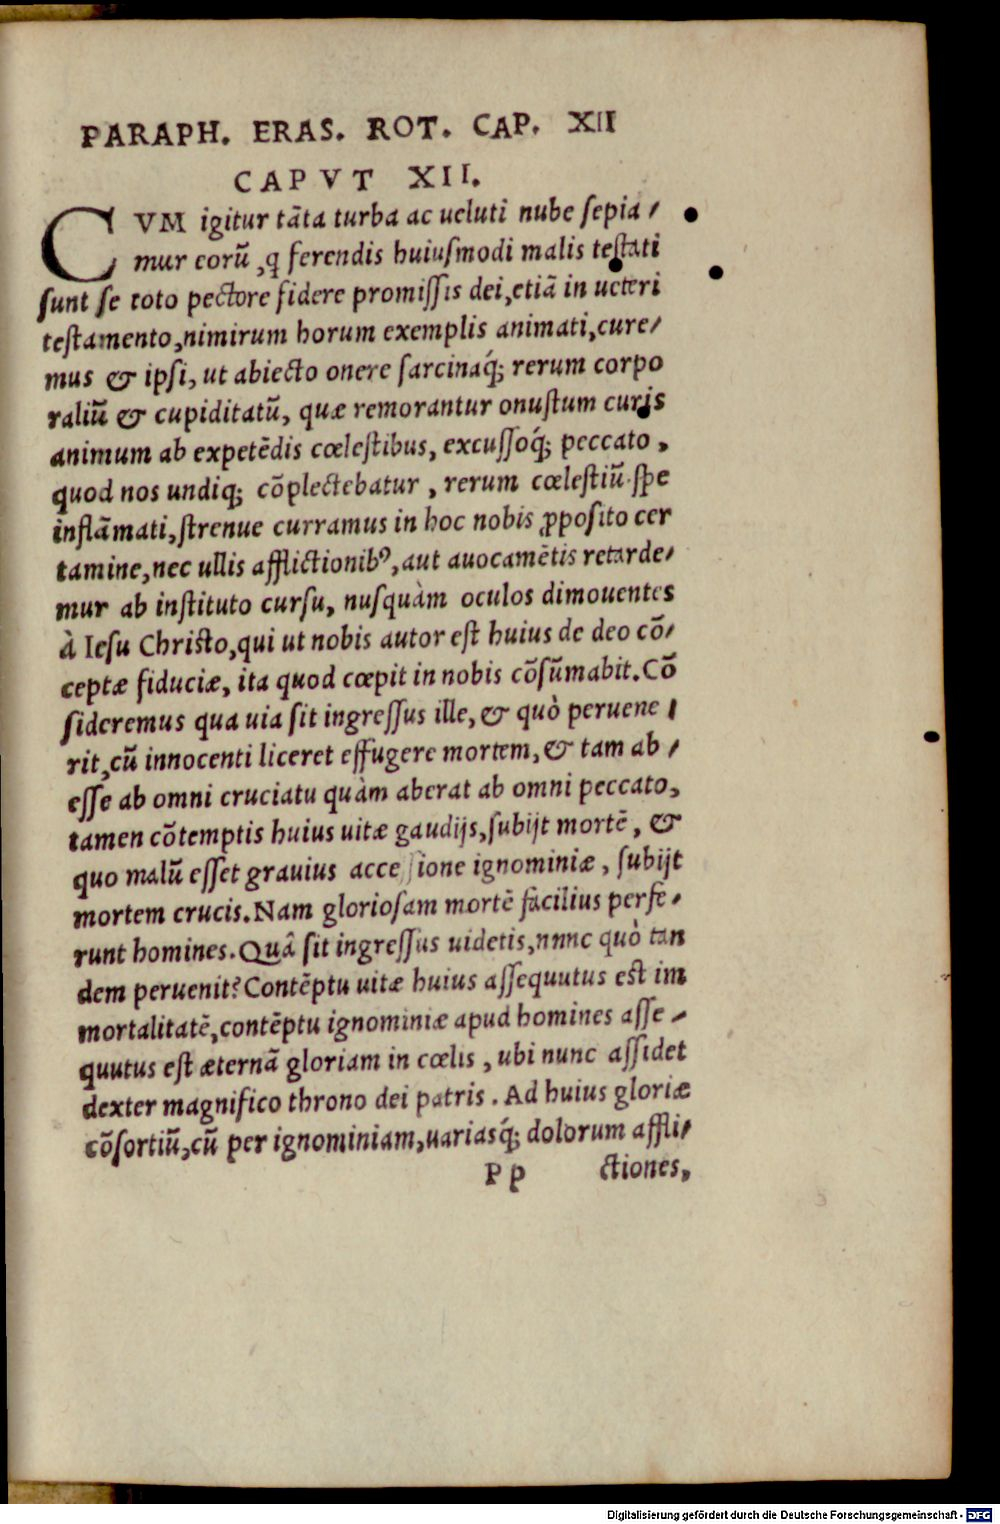 PARAPH. ERAS. ROT. CAP. XII
CAPVT XII.
CVM igitur tāta turba ac ueluti nube sepia/
mur eorū, q ferendis huiusmodi malis testati
sunt se toto pectore fidere promissis dei, etiā in ueteri
testamento, nimirum horum exemplis animati, cure/
mus & ipsi, ut abiecto onere sarcinaq́; rerum corpo
raliū & cupiditatū, quæ remorantur onustum curis
animum ab expetēdis cœlestibus, excussoq́; peccato,
quod nos undiq; cōplectebatur, rerum cœlestiū spe
inflāmati, strenue curramus in hoc nobis ꝓposito cer
tamine, nec ullis afflictionibꝰ, aut auocamētis retarde/
mur ab instituto cursu, nusquàm oculos dimouentes
à Iesu Christo, qui ut nobis autor est huius de deo cō/
ceptæ fiduciæ, ita quod cœpit in nobis cōsūmabit. Cō
sideremus qua uia sit ingressus ille, & quò peruene/
rit, cū innocenti liceret effugere mortem, & tam ab/
esse ab omni cruciatu quàm aberat ab omni peccato,
tamen cōtemptis huius uitæ gaudijs, subijt mortē, &
quo malū esset grauius accessione ignominiæ, subijt
mortem crucis. Nam gloriosam mortē facilius perfe/
runt homines. Quâ sit ingressus uidetis, nnnc quò tan
dem peruenit? Contēptu uitæ huius assequutus est im
mortalitatē, contēptu ignominiæ apud homines asse/
quutus est æternā gloriam in cœlis, ubi nunc assidet
dexter magnifico throno dei patris. Ad huius gloriæ
cōsortiū, cū per ignominiam, uariasq́; dolorum affli/
Pp ctiones,
Digitalisierung gefördert durch die Deutsche Forschungsgemeinschaft - DFG